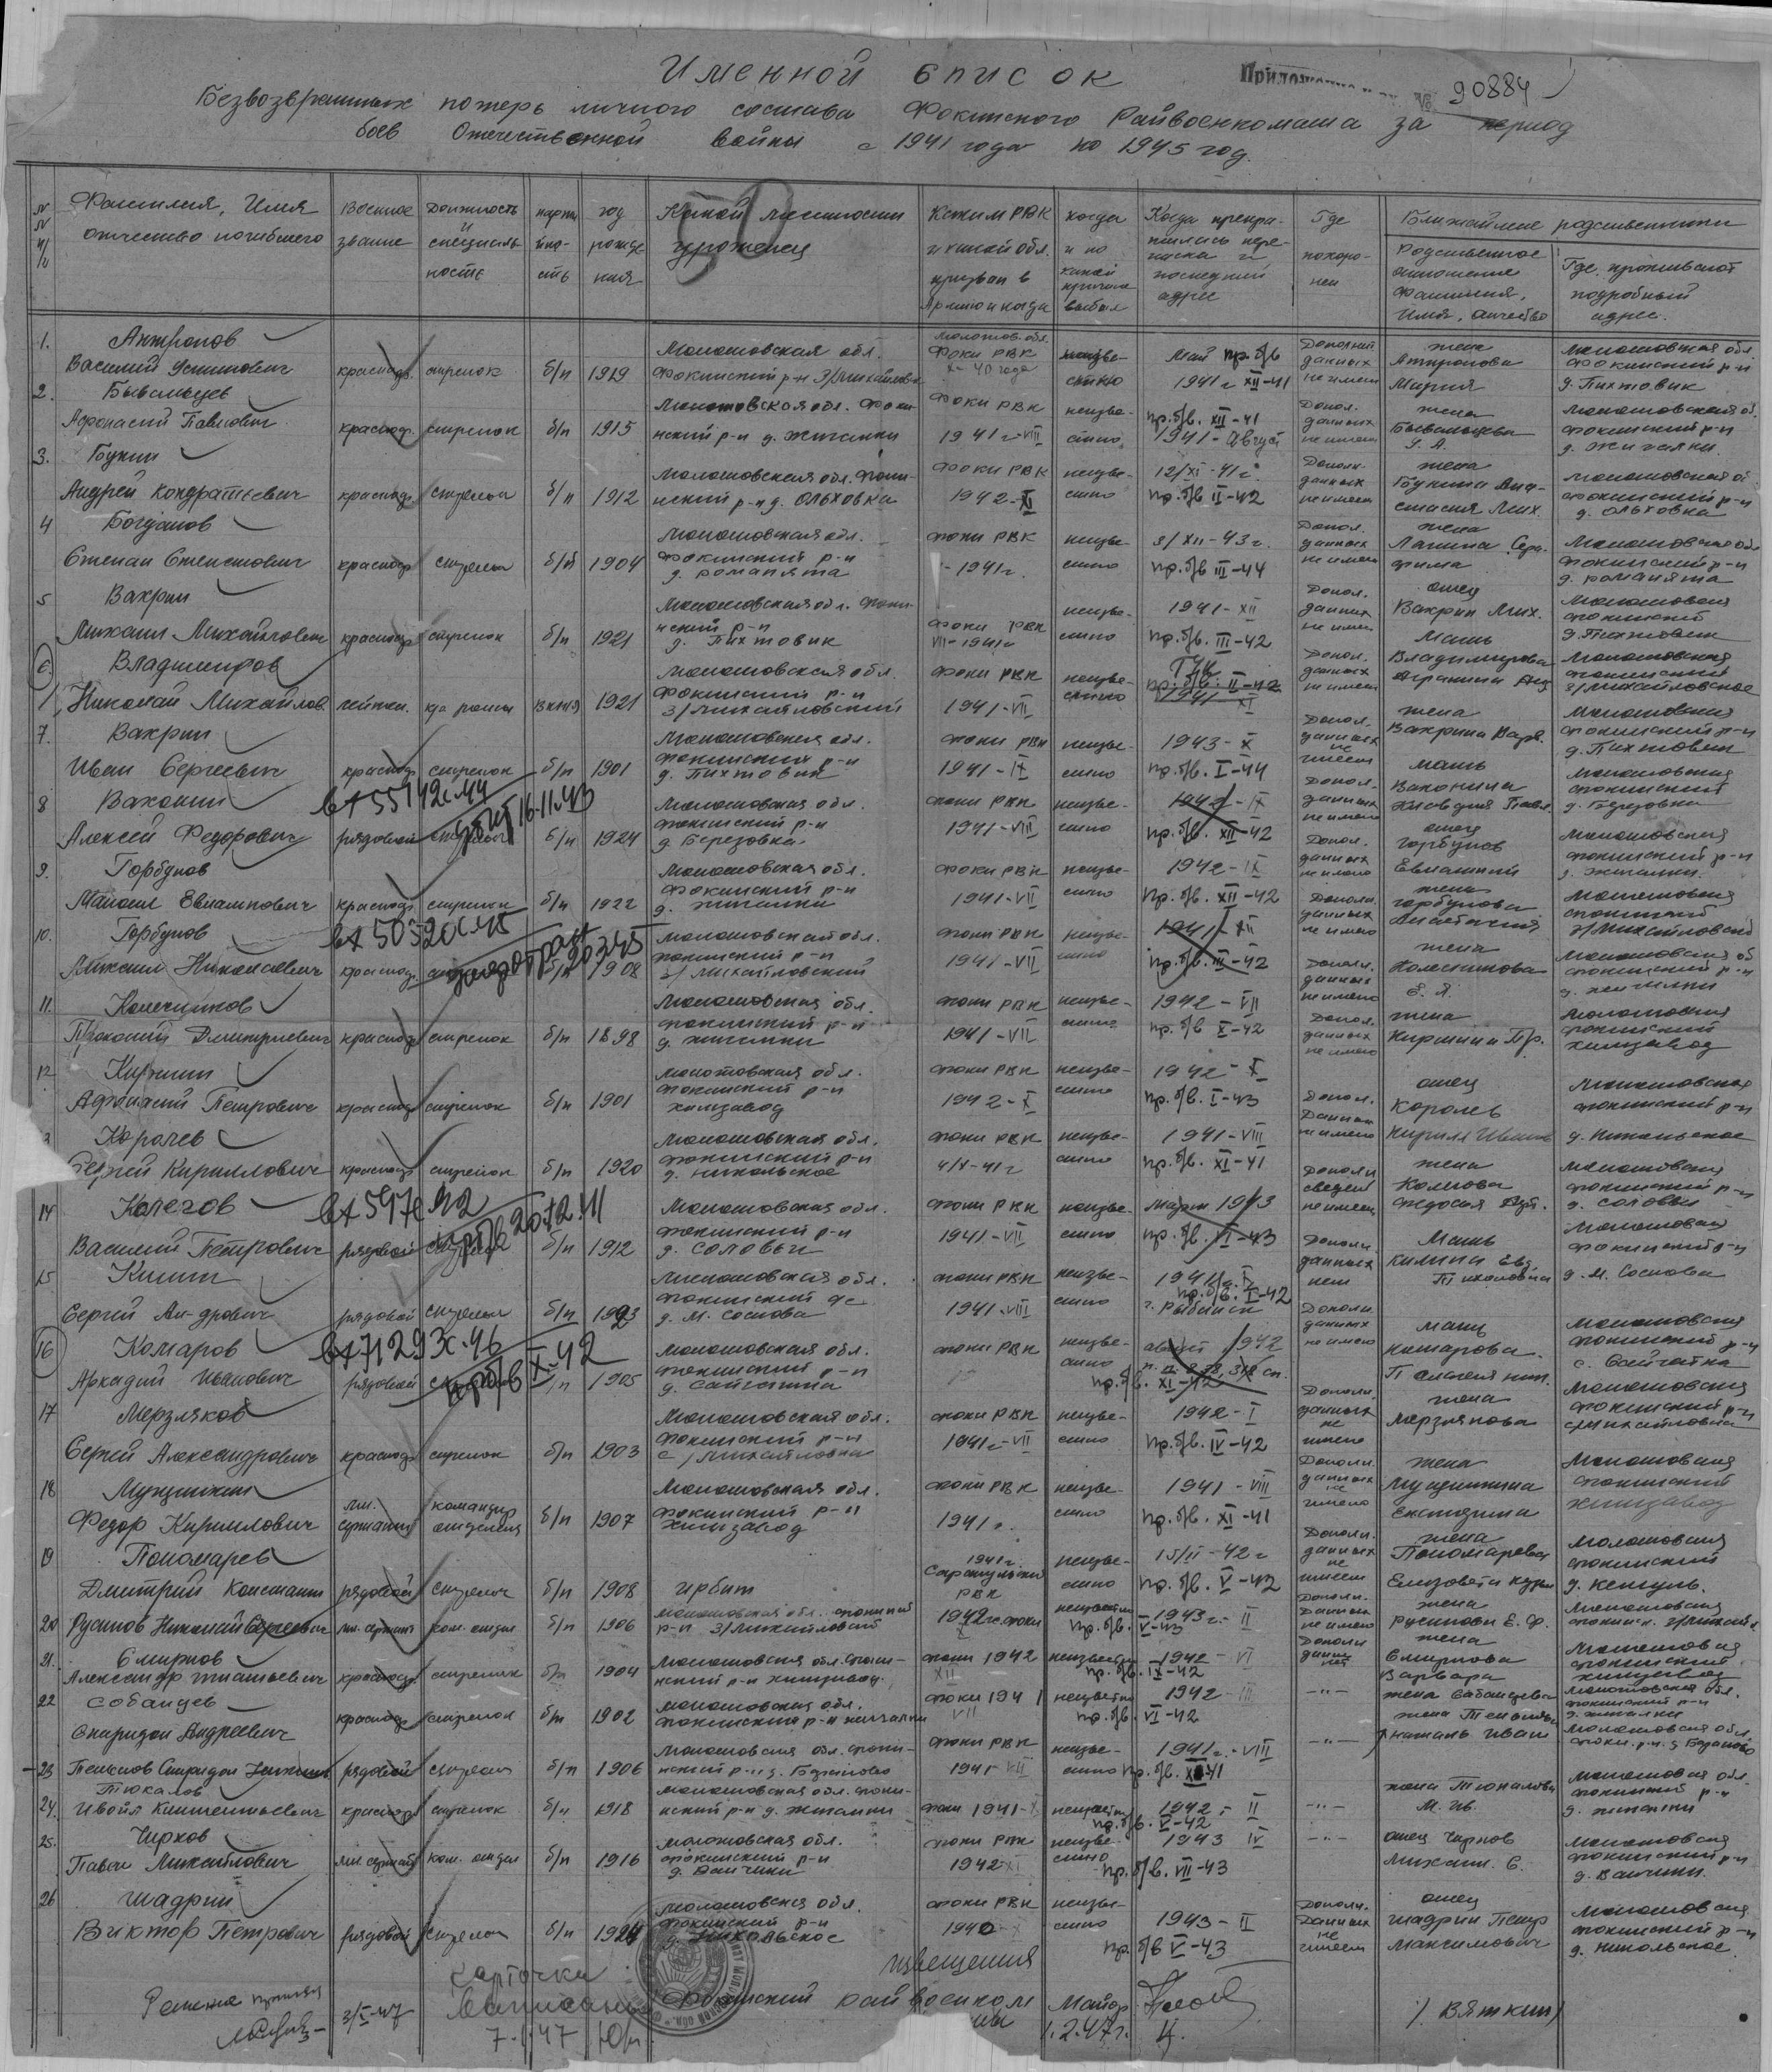 Именной список
Приложение № 90884
Безвозвратных потерь личного состава Фокинского Райвоенкомата за период
боев Отечественной войны с 1941 года по 1945 год.
Фамилия, Имя отчество погибшего
Военное звание
Должность и специальность
партийность
год рождения
Какой местности уроженец
Каким РВК и какой обл. призван в Армию и когда
когда и по какой причине выбыл
Когда прекратилась переписка и последний адрес
Где похоронен
Ближайшие родственники
Родственное отношение фамилия, имя, отчество
Где проживают подробный адрес.
1. Антропов
Василий Устинович красноар. стрелок б/п 1919 Молотовская обл. Фокинский р-н З/Михайловск Молотов. обл. Фоки РВК X-40 года неизвестно май 1941 г пр. б/в XII-41 Дополн. данных не имеем жена Антропова Мария Молотовская обл. Фокинский р-н д. Пихтовик
2. Бывальцев
Афонасий Павлович красноар. стрелок б/п 1915 Молотовская обл. Фокинский р-н д. Жигалки Фоки РВК 1941 г-VIII неизвестно пр. б/в. XII-41 1941-Август Допол. данных не имеем жена Бывальцева Молотовская об. Фокинский р-н д. Жигалки.
3. Букин
Андрей Кондратьевич красноар. стрелок б/п 1912 Молотовская обл. Фокинский р-н д. Ольховка Фоки РВК 1942-XI неизвестно 12/XI-41 г. пр. б/в II-42 Дополн. данных не имеем жена Букина Анастасия Мих. Молотовская об Фокинский р-н д. Ольховка
4 Богданов
Степан Степанович красноар стрелок б/п 1904 Молотовская обл. Фокинский р-н д. Романята Фоки РВК 1941 г. неизвестно 8/XII-43 г. пр. б/в III-44 Допол. данных не имеем жена Лапина Молотовская обл Фокинский р-н д. Романята
5 Вахрин
Михаил Михайлович красноар стрелок б/п 1921 Молотовская обл. Фокинский р-н д. Пихтовик Фоки РВК VII-1941 г неизвестно 1941-XII пр. б/в. III-42 Допол. данных не имеем отец Вахрин Мих. Молотовская Фокинский д. Пихтовик
6. Владимиров
Николай Михайлов. лейтен. к-р роты ВКП(б) 1921 Молотовская обл. Фокинский р-н З/Михайловский Фоки РВК 1941-VII неизвестно пр. б/в. II-42 1941 XI Допол. данных не имеем мать Владимирова Молотовская Фокинский З/Михайловское
7. Вахрин
Иван Сергеевич красноар стрелок б/п 1901 Молотовская обл. Фокинский р-н д. Пихтовик Фоки РВК 1941-IX неизвестно 1943-X пр. б/в. I-44 Допол. данных не имеем жена Вахрина Варв. Молотовская Фокинский р-н д. Пихтовик
8 Вахонин вх 55142с.44 убит 16.11.43
Алексей Федорович рядовой стрелок б/п 1924 Молотовская обл. Фокинский р-н д. Березовка Фоки РВК 1941-VIII неизвестно 1942-IX пр. б/в. XII-42 Допол. данных не имеем мать Вахонина Клавдия Павл. Молотовская Фокинский д. Березовка
9. Горбунов
Евлампович красноар стрелок б/п 1922 Молотовская обл. Фокинский р-н д. Жигалки Фоки РВК 1941-VII неизвестно 1942-IX пр. б/в. XII-42 Допол. данных не имеем отец Горбунов Евлампий Молотовская Фокинский р-н д. Жигалки.
10. Горбунов вх 50520с.45 20.3.45
Михаил Николаевич красноар. б/п 1908 Молотовская обл. Фокинский р-н З/Михайловский Фоки РВК 1941-VII неизвестно 1941-XII пр. б/в. III-42 Дополн. данных не имеем жена Горбунова Молотовская Фокинский З/Михайловский
11. Колесников
Прокопий Дмитриевич красноар стрелок б/п 1898 Молотовская обл. Фокинский р-н д. Жигалки Фоки РВК 1941-VII неизвестно 1942-VII пр. б/в X-42 Дополн. данных не имеем жена Колесникова Е. Я. Молотовская об Фокинский р-н д. Жигалки
12 Киршин
Афонасий Петрович красноар стрелок б/п 1901 Молотовская обл. Фокинский р-н химзавод Фоки РВК 1942-X неизвестно 1942-X пр. б/в. I-43 Допол. данных не имеем жена Киршина Пр. Молотовская Фокинский химзавод
3 Королев
Сергей Кириллович красноар стрелок б/п 1920 Молотовская обл. Фокинский р-н д. Никольское Фоки РВК 4/X-41 г неизвестно 1941-VIII пр. б/в. XI-41 Допол. данных не имеем отец Королев Кирилл Иванов Молотовская Фокинский р-н д. Никольское
14 Колегов вх 597с 42 пр б/в 20.12.41
Василий Петрович рядовой стрелок б/п 1912 Молотовская обл. Фокинский р-н д. Соловьи Фоки РВК 1941-VII неизвестно март 1943 пр. б/в. VI-43 Дополн сведен не имеем жена Колегова Федосия Молотовская Фокинский р-н д. Соловьи
15 Килин
Сергей Ан-дрович рядовой стрелок б/п 1923 Молотовская обл. Фокинский д. М. Соснова Фоки РВК 1941-VIII неизвестно пр. б/в. I-42 г. Рыбинск Дополн. данных нет мать Килина Евд. Тихоновна Молотовская Фокинский р-н д. М. Соснова
16 Комаров вх 71293с.46 пр б/в X-42
Аркадий Иванович рядовой 1905 Молотовская обл. Фокинский р-н д. Сайгатка Фоки РВК неизвестно август 1942 пр. б/в. XI-42 Дополн. данных не имеем мать Комарова Молотовская Фокинский р-н с. Сайгатка
17 Мерзляков
Сергей Александрович красноар стрелок б/п 1903 Молотовская обл. Фокинский р-н с/Михайловка Фоки РВК 1941 г-VII неизвестно 1942-I пр. б/в. IV-42 Дополн. данных не имеем жена Мерзлякова Молотовская Фокинский р-н
18 Мущинкин
Федор Кириллович мл. сержант командир отделения б/п 1907 Молотовская обл. Фокинский р-н химзавод Фоки РВК 1941 г. неизвестно 1941-VIII пр. б/в. XI-41 Дополн. данных не имеем жена Мущинкина Екатерина Молотовская Фокинский химзавод
19 Пономарев
Дмитрий Констант рядовой стрелок б/п 1908 Ирбит 1941 г. Сарапульский РВК неизвестно 15/II-42 г пр. б/в. V-42 Дополн. данных не имеем жена Пономарева Елизовета Молотовская Фокинский д. Кемуль.
20 Русинов Николай Сергеевич мл. сержант ком. отдел б/п 1906 Молотовская обл. Фокинский р-н З/Михайловский 1942 г. Фоки неизвестно 1943 г.-II пр. б/в. V-43 Дополн. данных не имеем жена Русинова Е. Ф. Молотовская
21. Смирнов
Александр Игнатьевич красноар стрелок б/п 1904 Молотовская обл. Фокинский р-н химзавод. Фоки 1942 XII неизвестно 1942-VI пр. б/в. IX-42 Дополн данных нет жена Смирнова Варвара Молотовская Фокинский химзавод
22 Собанцев
Спиридон Андреевич красноар стрелок б/п 1902 Молотовская обл. Фокинский р-н Жигалки Фоки 1941 VII неизвестно 1942-III пр. б/в. VI-42 -"- жена Собанцева Молотовская обл. Фокинский р-н д. Жигалки
23 Спиридон рядовой стрелок б/п 1906 Молотовская обл. Фокинский р-н Фоки РВК 1941 VII неизвестно 1941 г.-VIII пр. б/в. XI-41 -"- жена Молотовская обл
Тюкалов
24. красноар стрелок б/п 1918 Молотовская обл. Фокинский р-н д. Жигалки Фоки 1941-X неизвестно 1942-II пр. б/в. V-42 -"- жена Тюкалова М. Ив. Молотовская обл. Фокинский р-н д. Жигалки
25. Чирков
Павел Михайлович мл. сержант ком. отдел б/п 1916 Молотовская обл. Фокинский р-н д. Ванчики Фоки РВК 1942 XI неизвестно 1943 IV пр. б/в. VII-43 -"- отец Чирков Михаил С. Молотовская Фокинский р-н д. Ванчики.
26 Шадрин
Виктор Петрович рядовой стрелок б/п 1924 Молотовская обл. Фокинский р-н д. Никольское Фоки РВК 1940 неизвестно 1943-II пр. б/в V-43 Дополн. данных не имеем отец Шадрин Петр Максимович Молотовская Фокинский р-н д. Никольское
извещения
Карточки
3/I-47
7.1.47
Фокинский райвоенком Майор
1.2.47 г.
/Вяткин/